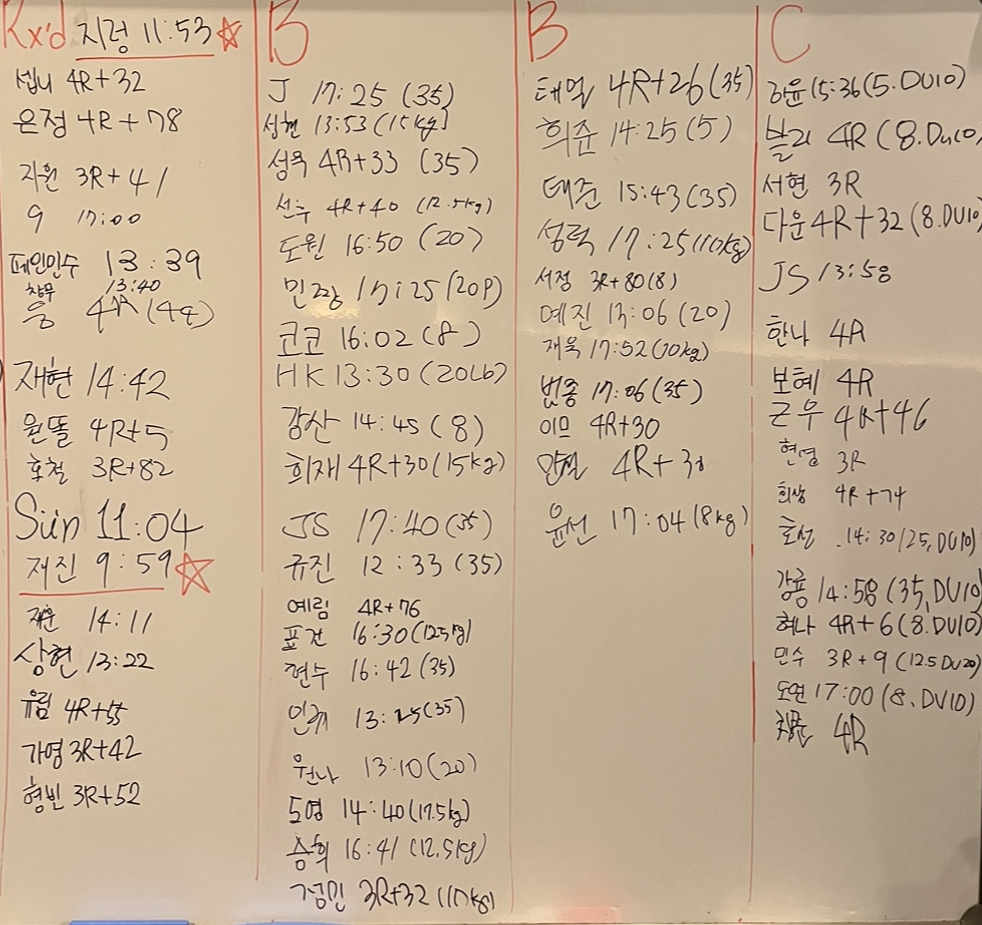 Rx'd 지정 11:53
셉니 4R+32
은정 4R+78
지원 3R+41
9 17:00
페인민수 13:39
창무 13:40
웅 4R(44)
재현 14:42
원똘 4R+5
호철 3R+82
Sun 11:04
재진 9:59
재운 14:11
상현 13:22
유림 4R+55
가영 3R+42
형빈 3R+52
B
J 17:25 (35)
성현 13:53 (15kg)
성욱 4R+33 (35)
선우 4R+40 (12.5kg)
도원 16:50 (20)
민짱 17:25 (20P)
코코 16:02 (8)
HK 13:30 (20Lb)
감산 14:45 (8)
희재 4R+30 (15kg)
JS 17:40 (35)
규진 12:33 (35)
예림 4R+76
표건 16:30 (12.5kg)
현수 16:42 (35)
인규 13:25 (35)
원나 13:10 (20)
도영 14:40 (17.5kg)
승희 16:41 (12.5kg)
경민 3R+32 (17kg)
B
태열 4R+26 (35)
희준 14:25 (5)
태준 15:43 (35)
성력 17:25 (10kg)
서정 3R+80 (8)
예진 13:06 (20)
재욱 17:52 (10kg)
범종 17:06 (35)
이므 4R+30
4R+31
윤선 17:04 (8kg)
C
하윤 15:36 (5.DU10)
블리 4R (8.DU10)
서현 3R
다운 4R+32 (8.DU10)
JS 13:58
한나 4R
보혜 4R
근우 4R+46
현영 3R
희상 4R+74
호선 14:30 (25,DU10)
강룡 14:58 (35,DU10)
혀나 4R+6 (8.DU10)
민수 3R+9 (12.5 DU20)
도연 17:00 (8.DU10)
4R